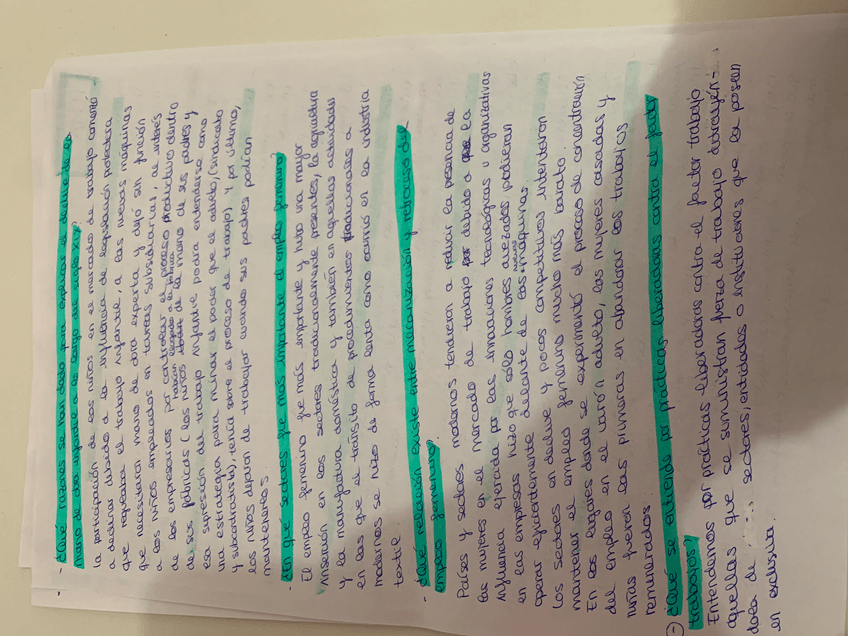 - ¿Qué razones se han dado para explicar el declive de la
mano de obra infantil a lo largo del siglo XIX?
La participación de los niños en el mercado de trabajo comenzó
a declinar debido a la influencia de legislación protectora
que regulaba el trabajo infantil, a las nuevas máquinas
que necesitaron mano de obra experta y dejó sin función
a los niños empleados en tareas subsidiarias, al interés
de los empresarios por controlar el proceso productivo dentro
de sus fábricas (los niños habían escapado a esa fábrica de la mano de sus padres y
la supresión del trabajo infantil podría entenderse como
una estrategia para minar el poder que el adulto, (sindicato
y subcontratista), tenía sobre el proceso de trabajo), y por último,
los niños dejaron de trabajar cuando sus padres podían
mantenerlos.
- ¿En qué sectores fue más importante el empleo femenino?
El empleo femenino fue más importante y tuvo una mayor
inserción en los sectores tradicionalmente presentes, la agricultura
y la manufactura doméstica y también en aquellas actividades
en las que el tránsito de procedimientos tradicionales a
modernos se hizo de forma lenta como ocurrió en la industria
textil.
- ¿Qué relación existe entre mecanización y retroceso del
empleo femenino?
Países y sectores modernos tendieron a reducir la presencia de
las mujeres en el mercado de trabajo debido a la
influencia ejercida por las innovaciones tecnológicas u organizativas
en las empresas hizo que solo hombres avezados pudieran
operar eficientemente delante de las nuevas máquinas.
Los sectores en declive y pocos competitivos intentaron
mantener el empleo femenino mucho más barato.
En los lugares donde se experimentó el proceso de concentración
del empleo en el varón adulto, las mujeres casadas y
niñas fueron las primeras en abandonar los trabajos
remunerados.
- ¿Qué se entiende por prácticas liberadoras contra el factor
trabajos?
Entendemos por prácticas liberadoras contra el factor trabajo
aquellas que se suministran fuerza de trabajo detrayén-
dola de sectores, entidades o instituciones que la poseen
en exclusiva.